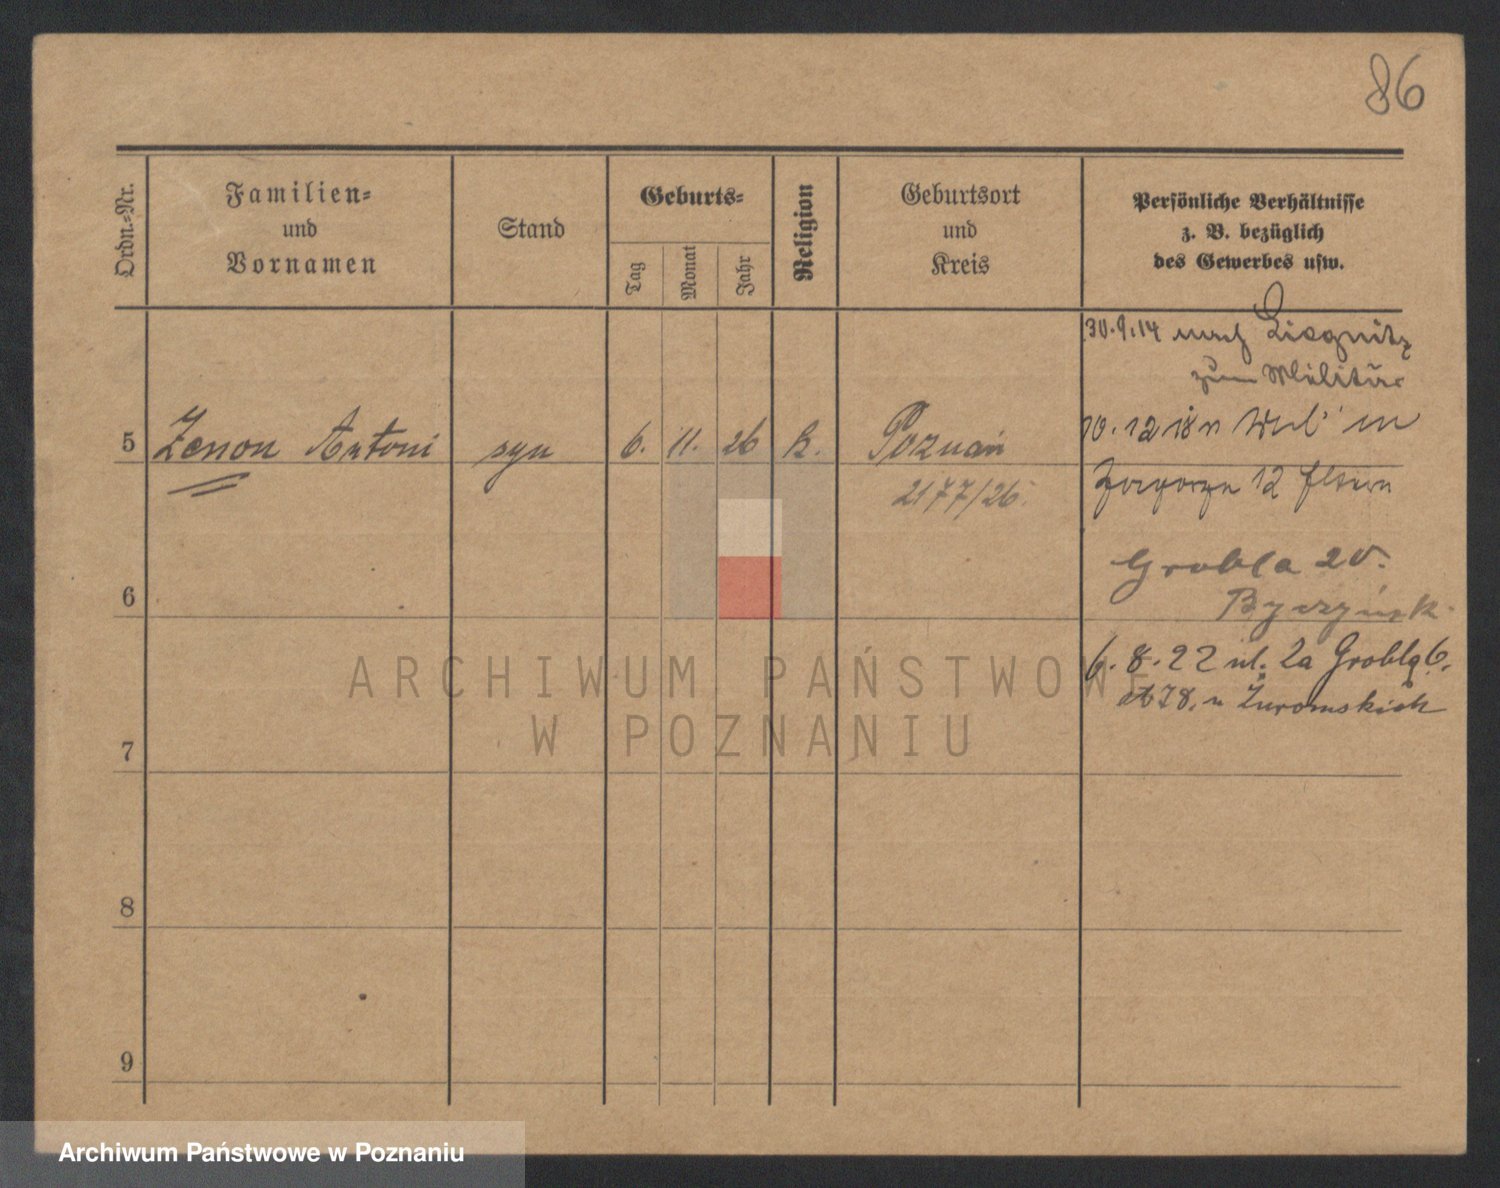 86
Ordn.=Nr.
Familien=
und
Vornamen
Stand
Geburts=
Tag
Monat
Jahr
Religion
Geburtsort
und
Kreis
Persönliche Verhältnisse
z. B. bezüglich
des Gewerbes usw.
30.9.14 nach Liegnitz
zum Militär
5 Zenon Antoni syn 6. 11. 26 k. Poznań
2177/26.
10.12.18 in
12 Eltern
Grobla 20.
6
6.8.22 ul. Za Groblą 6.
u Żuromskich
7
8
9
ARCHIWUM PAŃSTWOWE
W POZNANIU
Archiwum Państwowe w Poznaniu